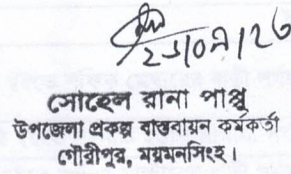 সোহেল রানা পাপ্পু
উপজেলা প্রকল্প বাস্তবায়ন কর্মকর্তা
গৌরীপুর, ময়মনসিংহ।